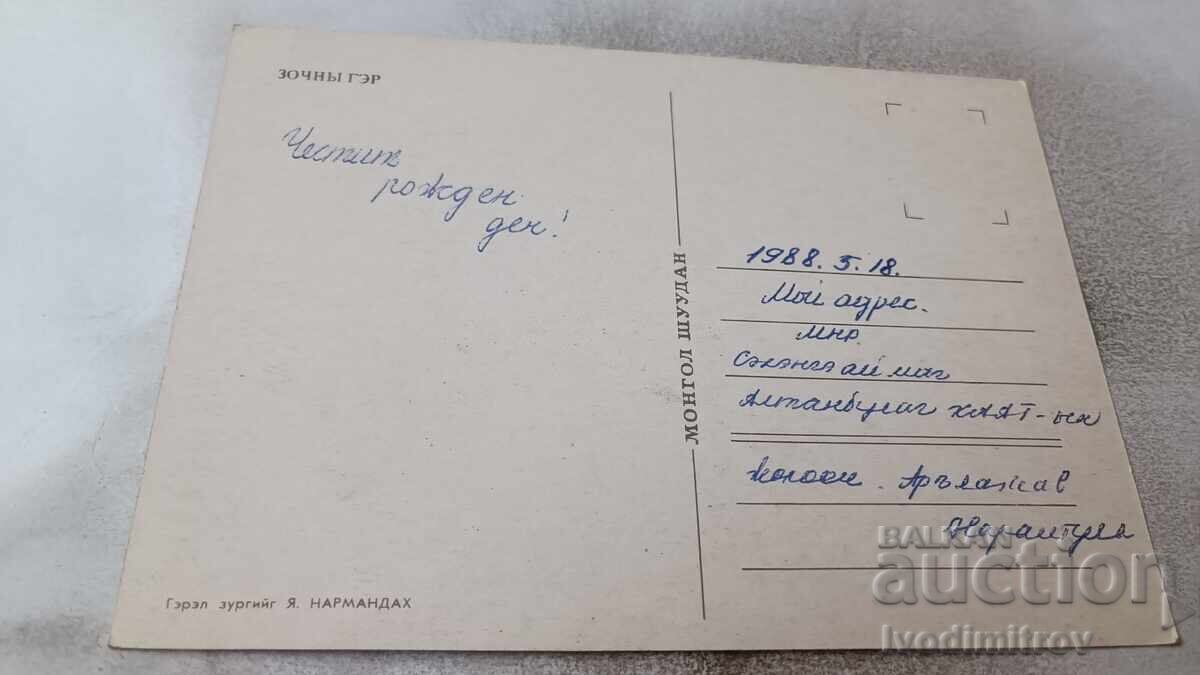 ЗОЧНЫ ГЭР
Честит
рожден
ден!
МОНГОЛ ШУУДАН
1988. 5. 18.
Мой адрес.
МНР
Сэлэнгэ аймаг
Алтанбулаг ХААТ-ын
Нарантуяа
Гэрэл зургийг Я. НАРМАНДАХ
BALKAN
auction
Ivodimitrov